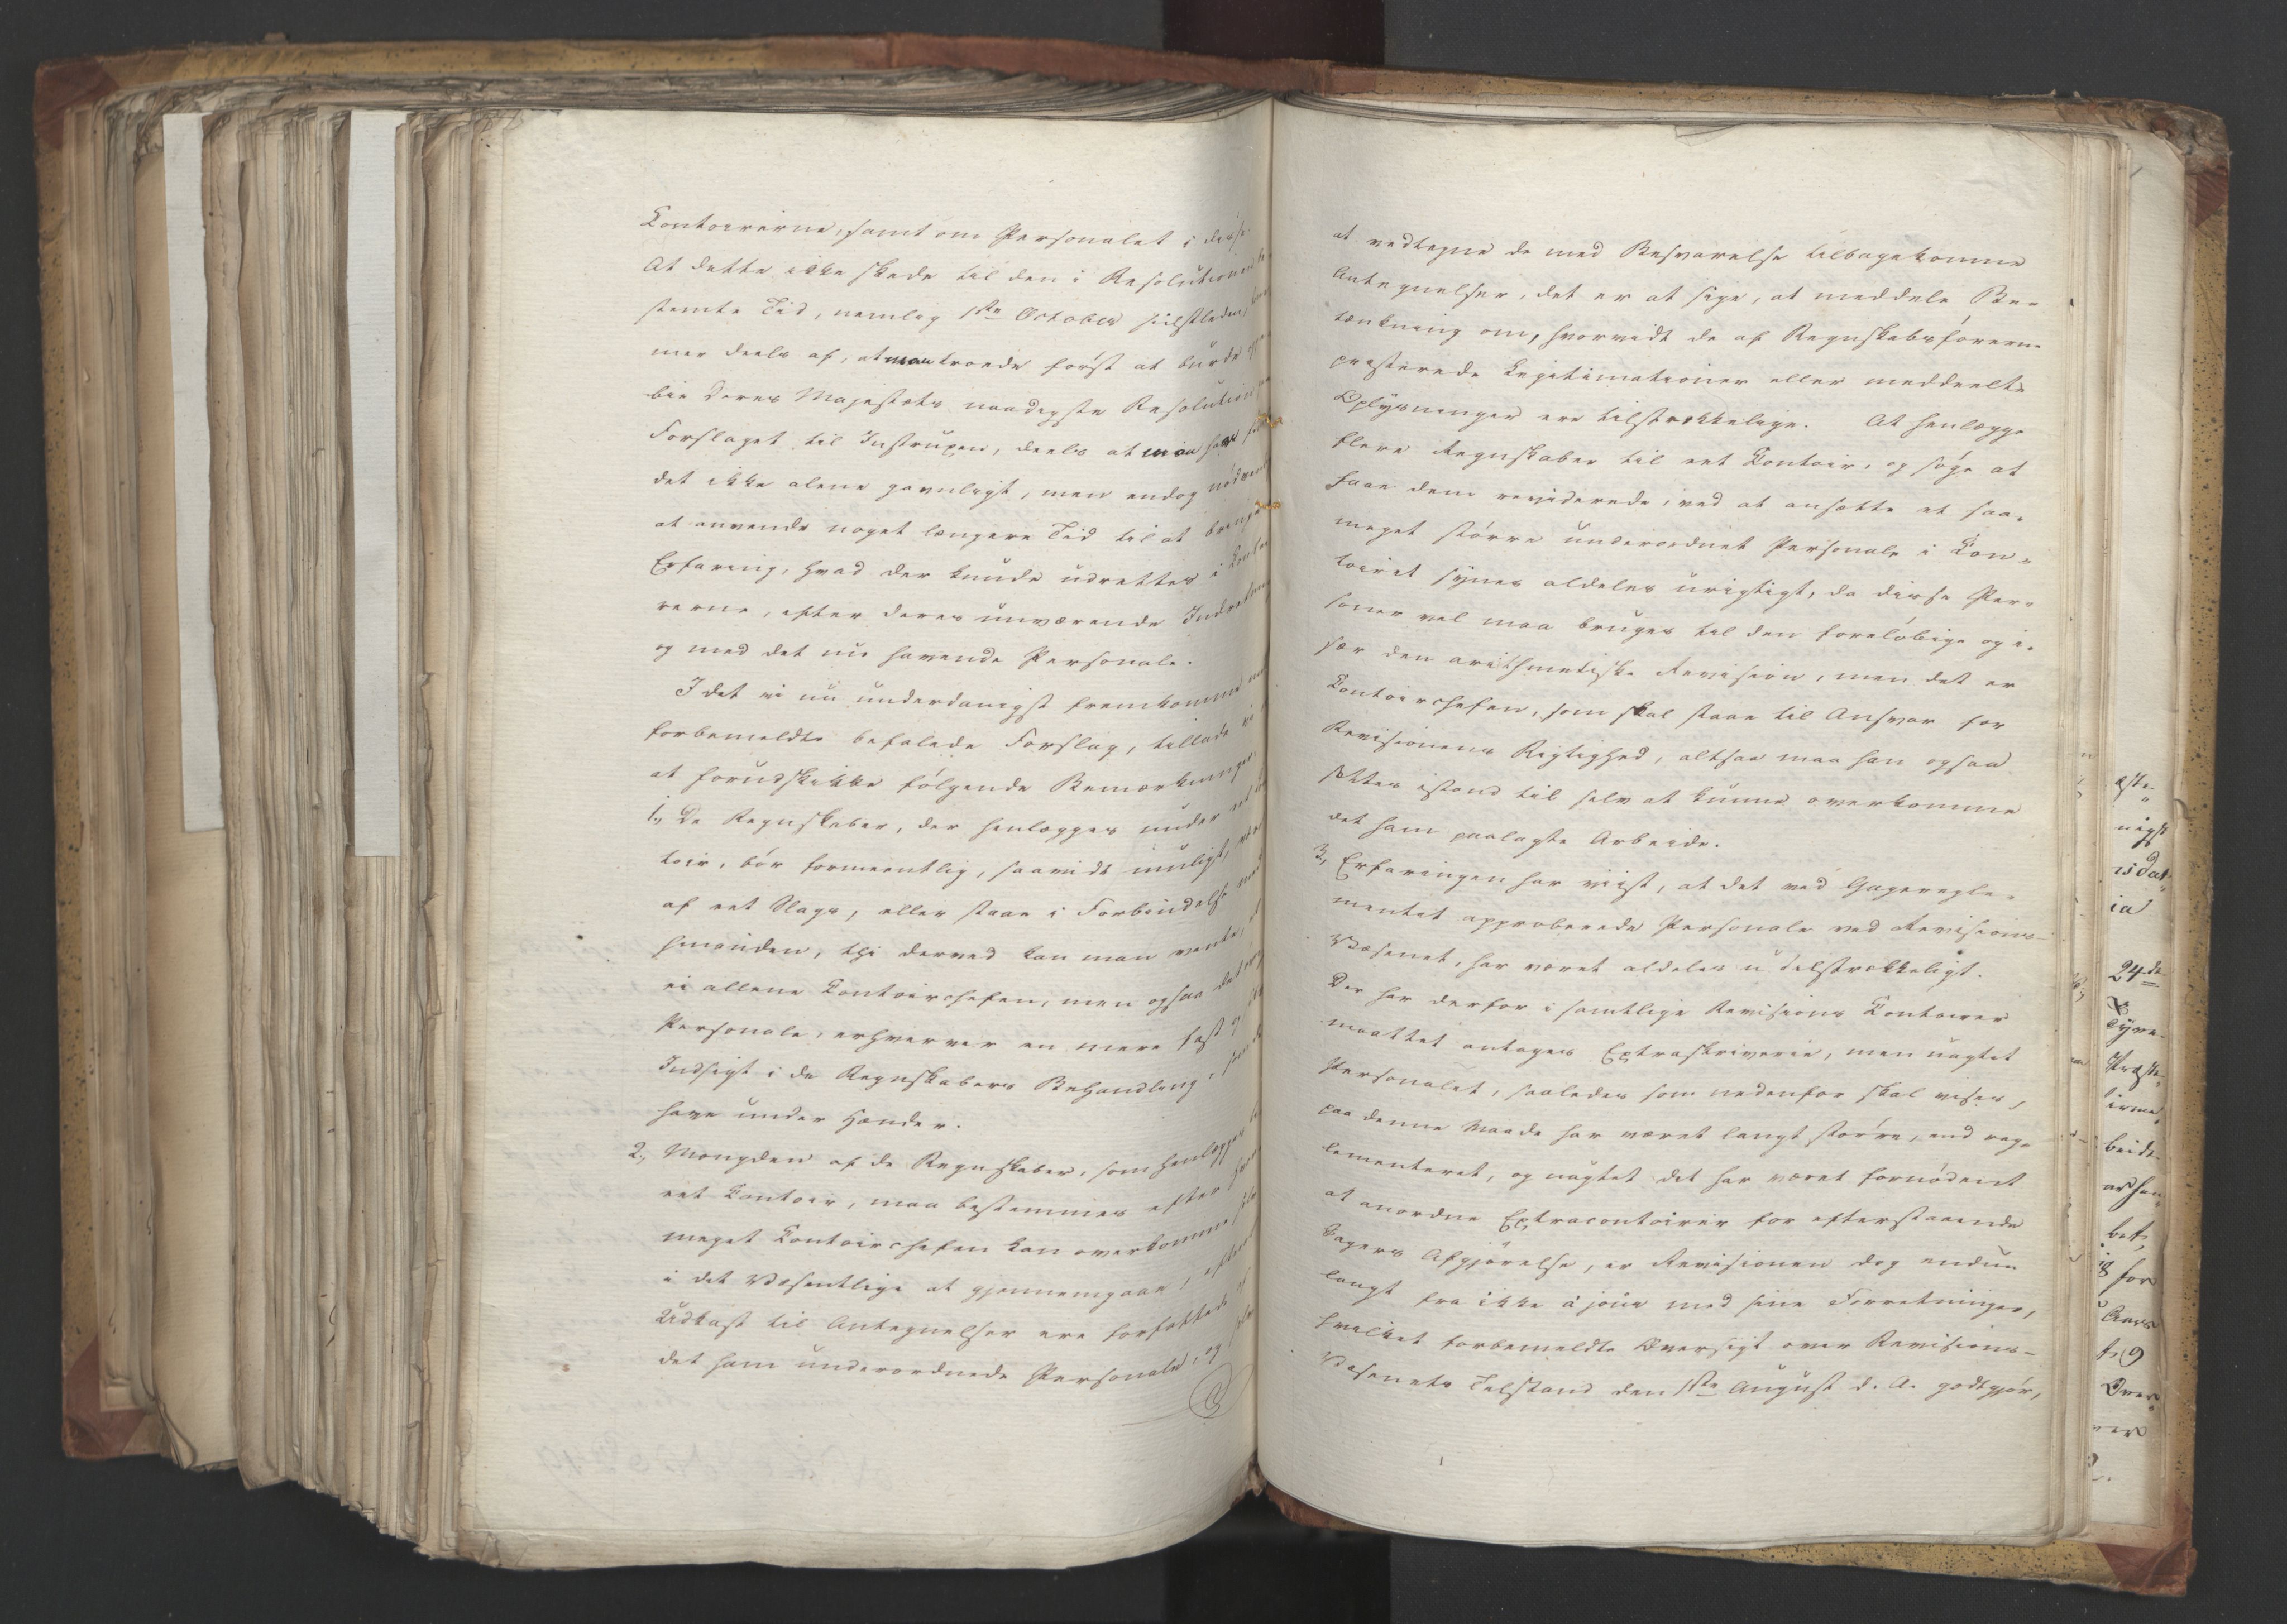 Contoirerne, samt om Personalet i disse.
At dette ikke skede til den i Resolutionen be-
stemte Tid, nemlig 1ste October sidstleden,
mer deels af, at man troede først at burde
bie Deres Majestæts naadigste Resolution
Forslaget til Instruxen, deels at man
det ikke alene gavnligt, men endog
at anvende noget længere Tid til at bringe
Erfaring, hvad der kunde udrettes i
rerne, efter deres nuværende
og med det nu havende Personale.
I det vi nu underdanigst fremkomme
forbemeldte befalede Forslag, tillade vi
at forudskikke følgende Bemærkninger.
1., De Regnskaber, der henlægges under eet
toir, bør formeentlig, saavidt muligt,
af eet Slags, eller staae i Forbindelse med
hinanden, thi derved kan man vente,
ei allene Contoirchefen, men ogsaa det
Personale, erhverver en mere fast og
Indsigt i de Regnskabers Behandling,
have under Hænder.
2., Mængden af de Regnskaber, som henlægges
eet Contoir, maa bestemmes efter
meget Contoirchefen kan overkomme
i det Væsentlige at gjennemgaae,
Udkast til Antegnelser ere forfattede
det ham underordnede Personale, og
at vedtegne de med Besvarelse tilbagekomne
Antegnelser, det er at sige, at meddele Be-
tænkning om, hvorvidt de af Regnskabsførerne
præsterede Legitimationer eller meddeelte
Oplysninger ere tilstrækkelige. At henlægge
flere Regnskaber til eet Contoir, og søge at
faae dem reviderede, ved at ansætte et saa-
meget større underordnet Personale i Con-
toiret synes aldeles urigtigt, da disse Per-
soner vel maa bruges til den foreløbige og i-
sær den arithmetiske Revision, men det er
Contoirchefen, som skal staae til Ansvar for
Revisionens Rigtighed, altsaa maa han ogsaa
sættes istand til selv at kunne overkomme
det ham paalagte Arbeide.
3., Erfaringen har viist, at det ved Gageregle-
mentet approberede Personale ved Revisions-
Væsenet, har været aldeles utilstrækkeligt.
Der har derfor i samtlige Revisions Contoirer
maattet antages Extraskrivere, men uagtet
Personalet, saaledes som nedenfor skal vises,
paa denne Maade har været langt større, end reg-
lementeret, og uagtet det har været fornødent
at anordne Extracontoirer for efterstaaende
Sagers Afgjørelse, er Revisionen dog endnu
langt fra ikke à jour med sine Forretninger,
hvilket forbemeldte Oversigt over Revisions-
Væsenets Tilstand den 1ste August d. A. godtgjør,
24de
for
Aars